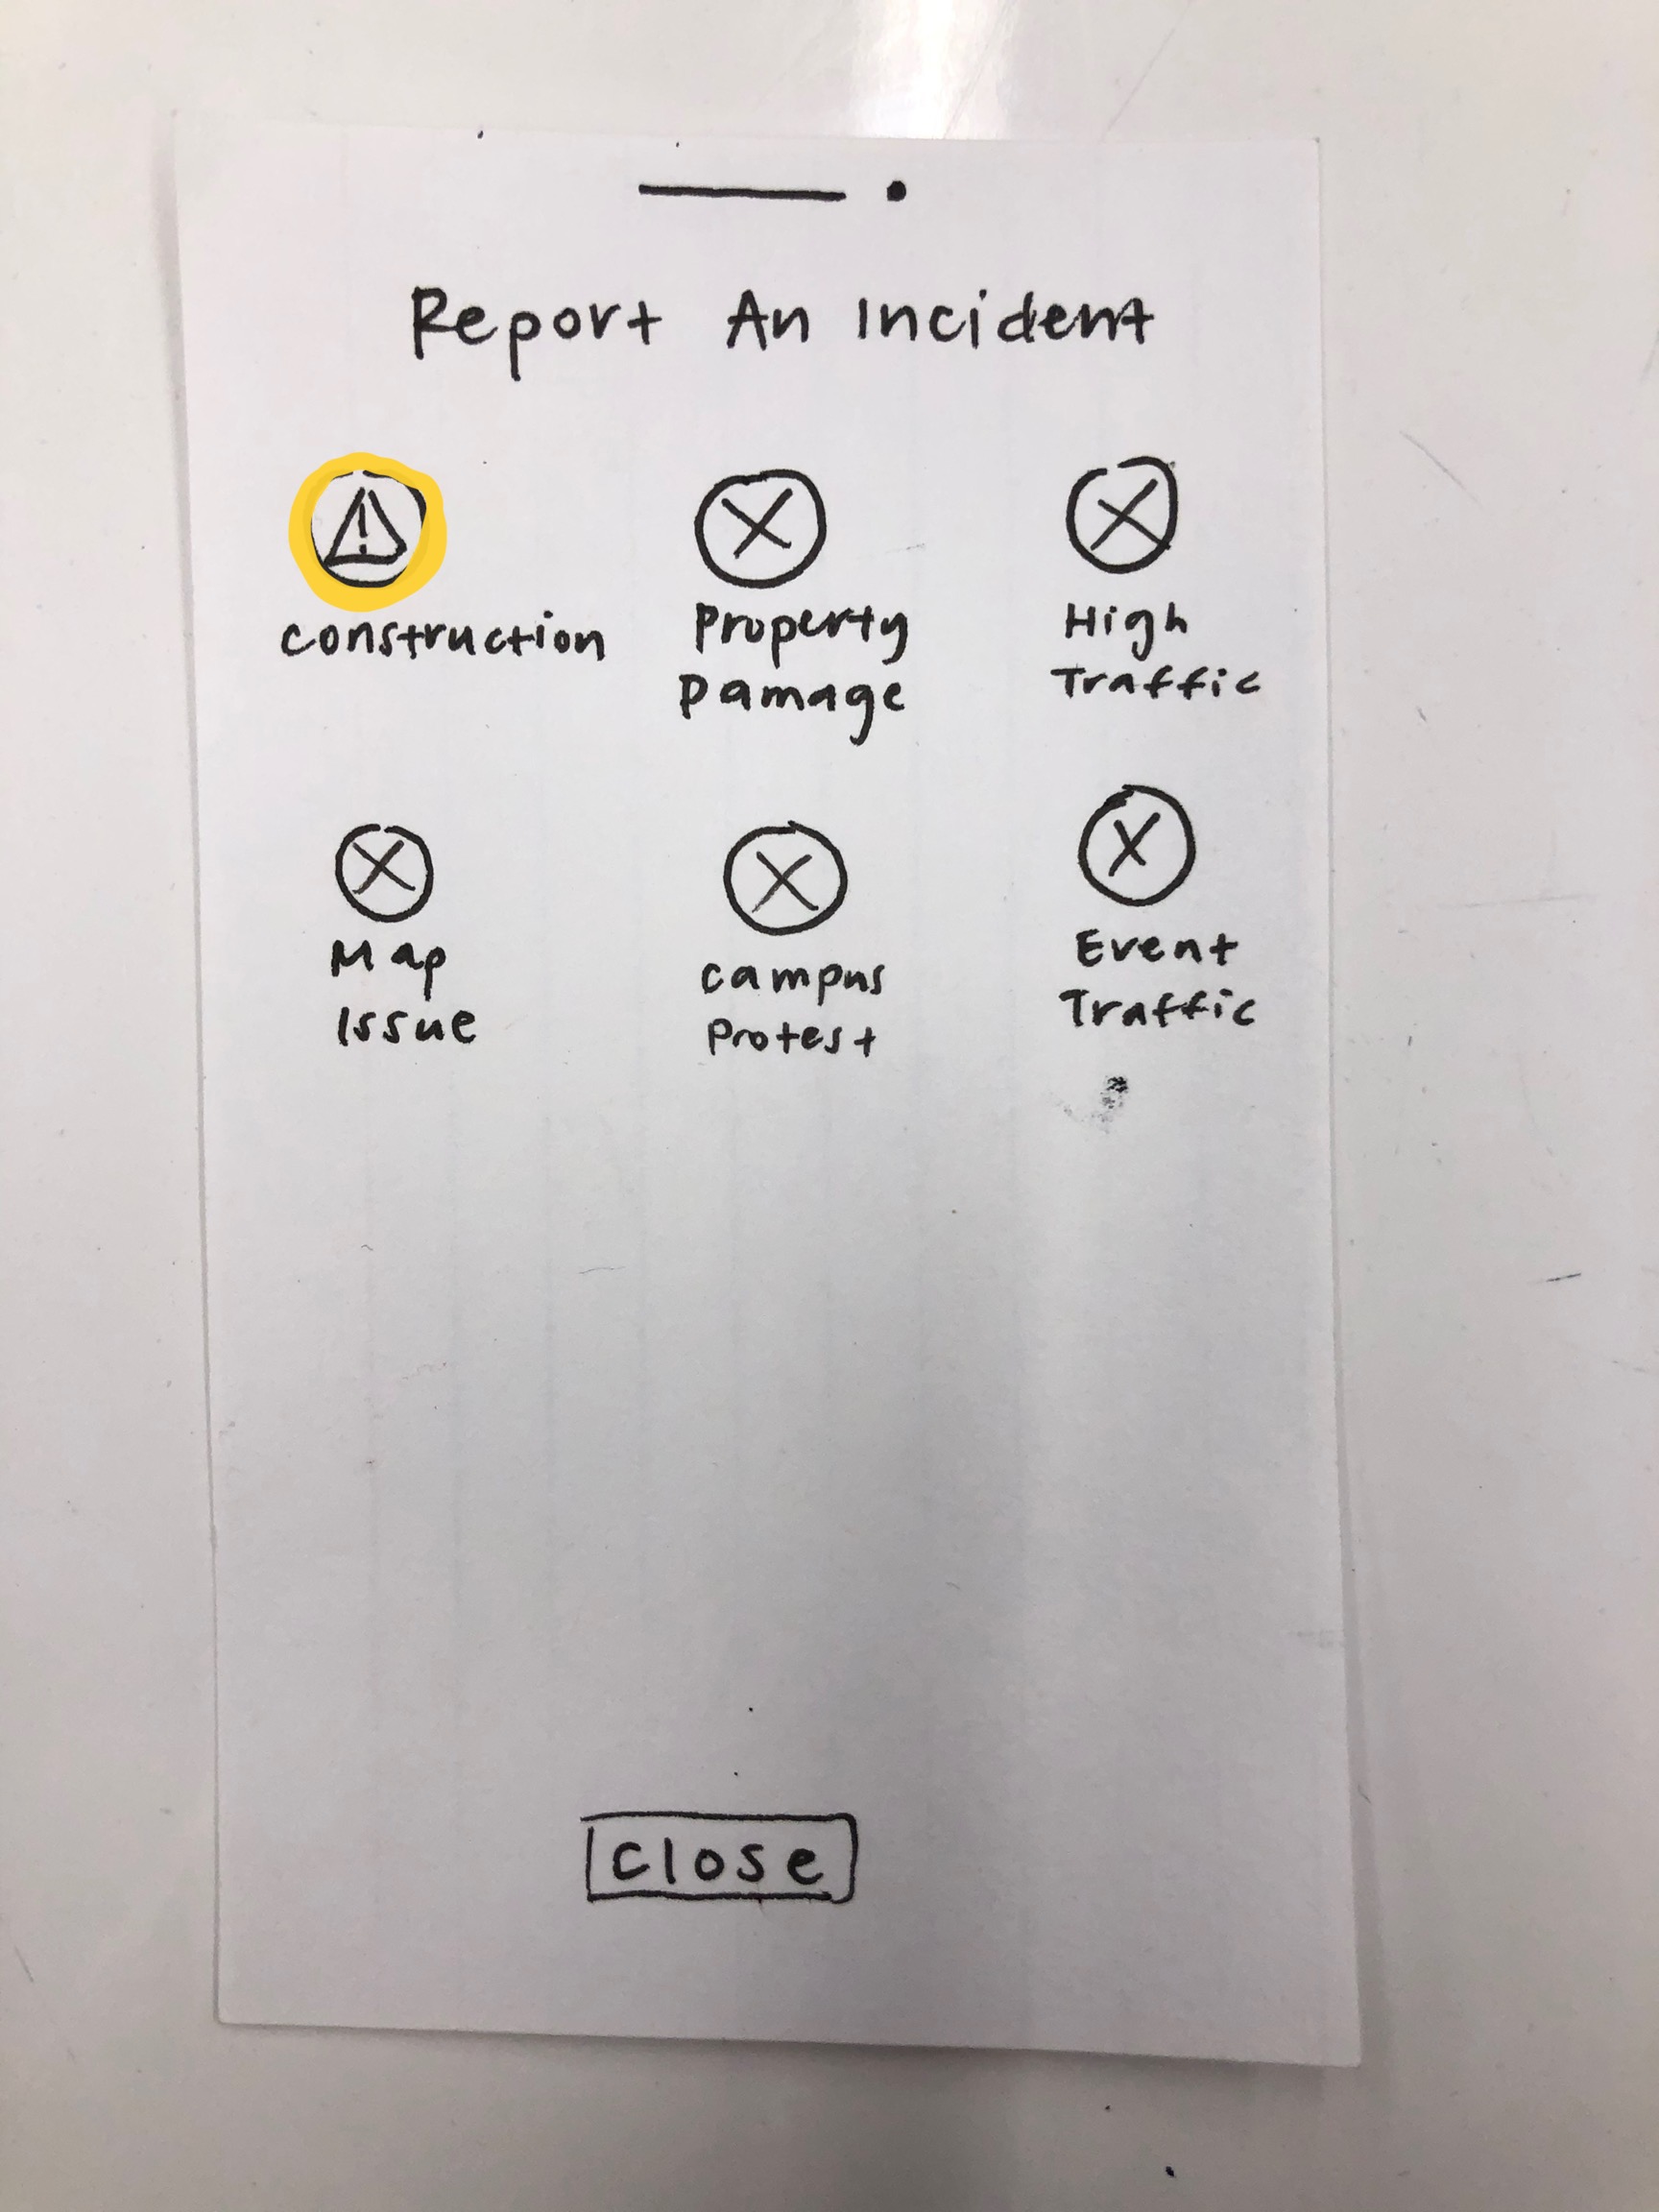 Report An Incident
Construction
Property
Damage
High
Traffic
Map
Issue
Campus
Protest
Event
Traffic
Close